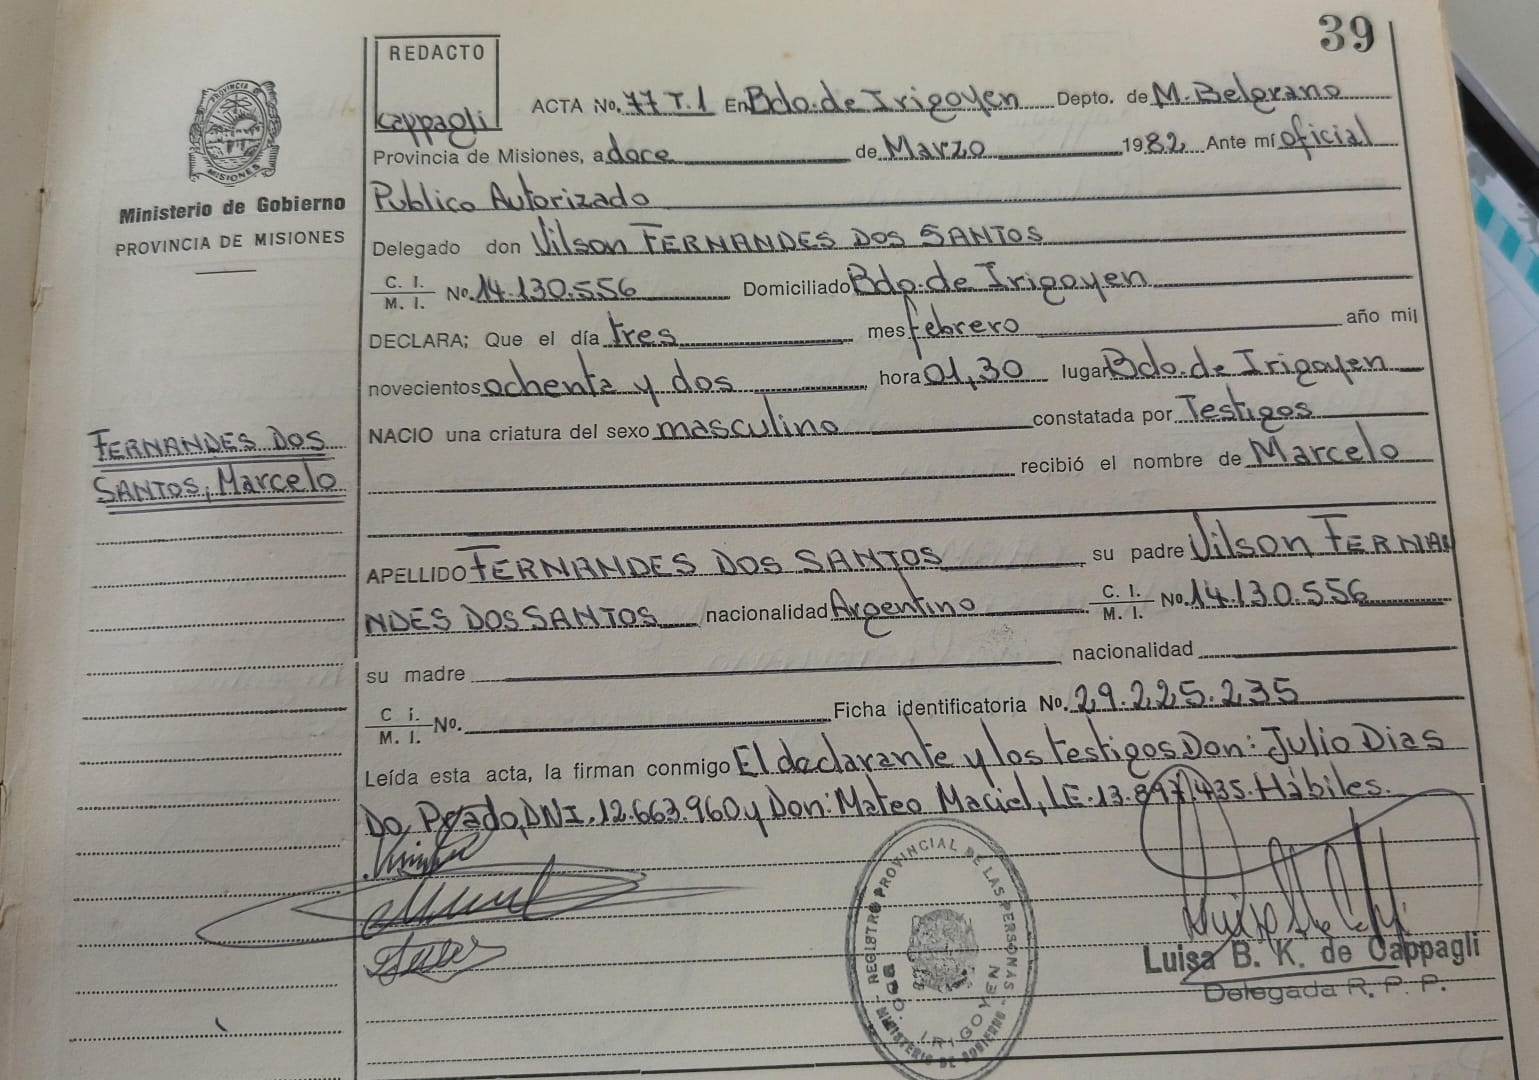 39
REDACTO
Cappagli
PROVINCIA
MISIONES
Ministerio de Gobierno
PROVINCIA DE MISIONES
ACTA No. 77 T.1 En Bdo. de Irigoyen Depto. de M. Belgrano
Provincia de Misiones, a doce de Marzo 1982 Ante mí oficial
Publico Autorizado
Delegado don Vilson FERNANDES DOS SANTOS
C. I. M. I. No. 14.130.556 Domiciliado Bdo. de Irigoyen
DECLARA; Que el día tres mes febrero año mil
novecientos ochenta y dos hora 01,30 lugar Bdo. de Irigoyen
NACIO una criatura del sexo masculino constatada por Testigos
recibió el nombre de Marcelo
FERNANDES DOS
SANTOS, Marcelo
APELLIDO FERNANDES DOS SANTOS su padre Vilson FERNA
NDES DOS SANTOS nacionalidad Argentino C. I. M. I. No. 14.130.556
su madre nacionalidad
C. i. M. I. No. Ficha identificatoria No. 29.225.235
Leída esta acta, la firman conmigo El declarante y los testigos Don: Julio Dias
Do Prado, DNI. 12.663.960 y Don: Mateo Maciel, LE. 13.897.435. Hábiles.
REGISTRO PROVINCIAL DE LAS PERSONAS
MINISTERIO DE GOBIERNO
BDO. DE IRIGOYEN
Luisa B. K. de Cappagli
Delegada R. P. P.